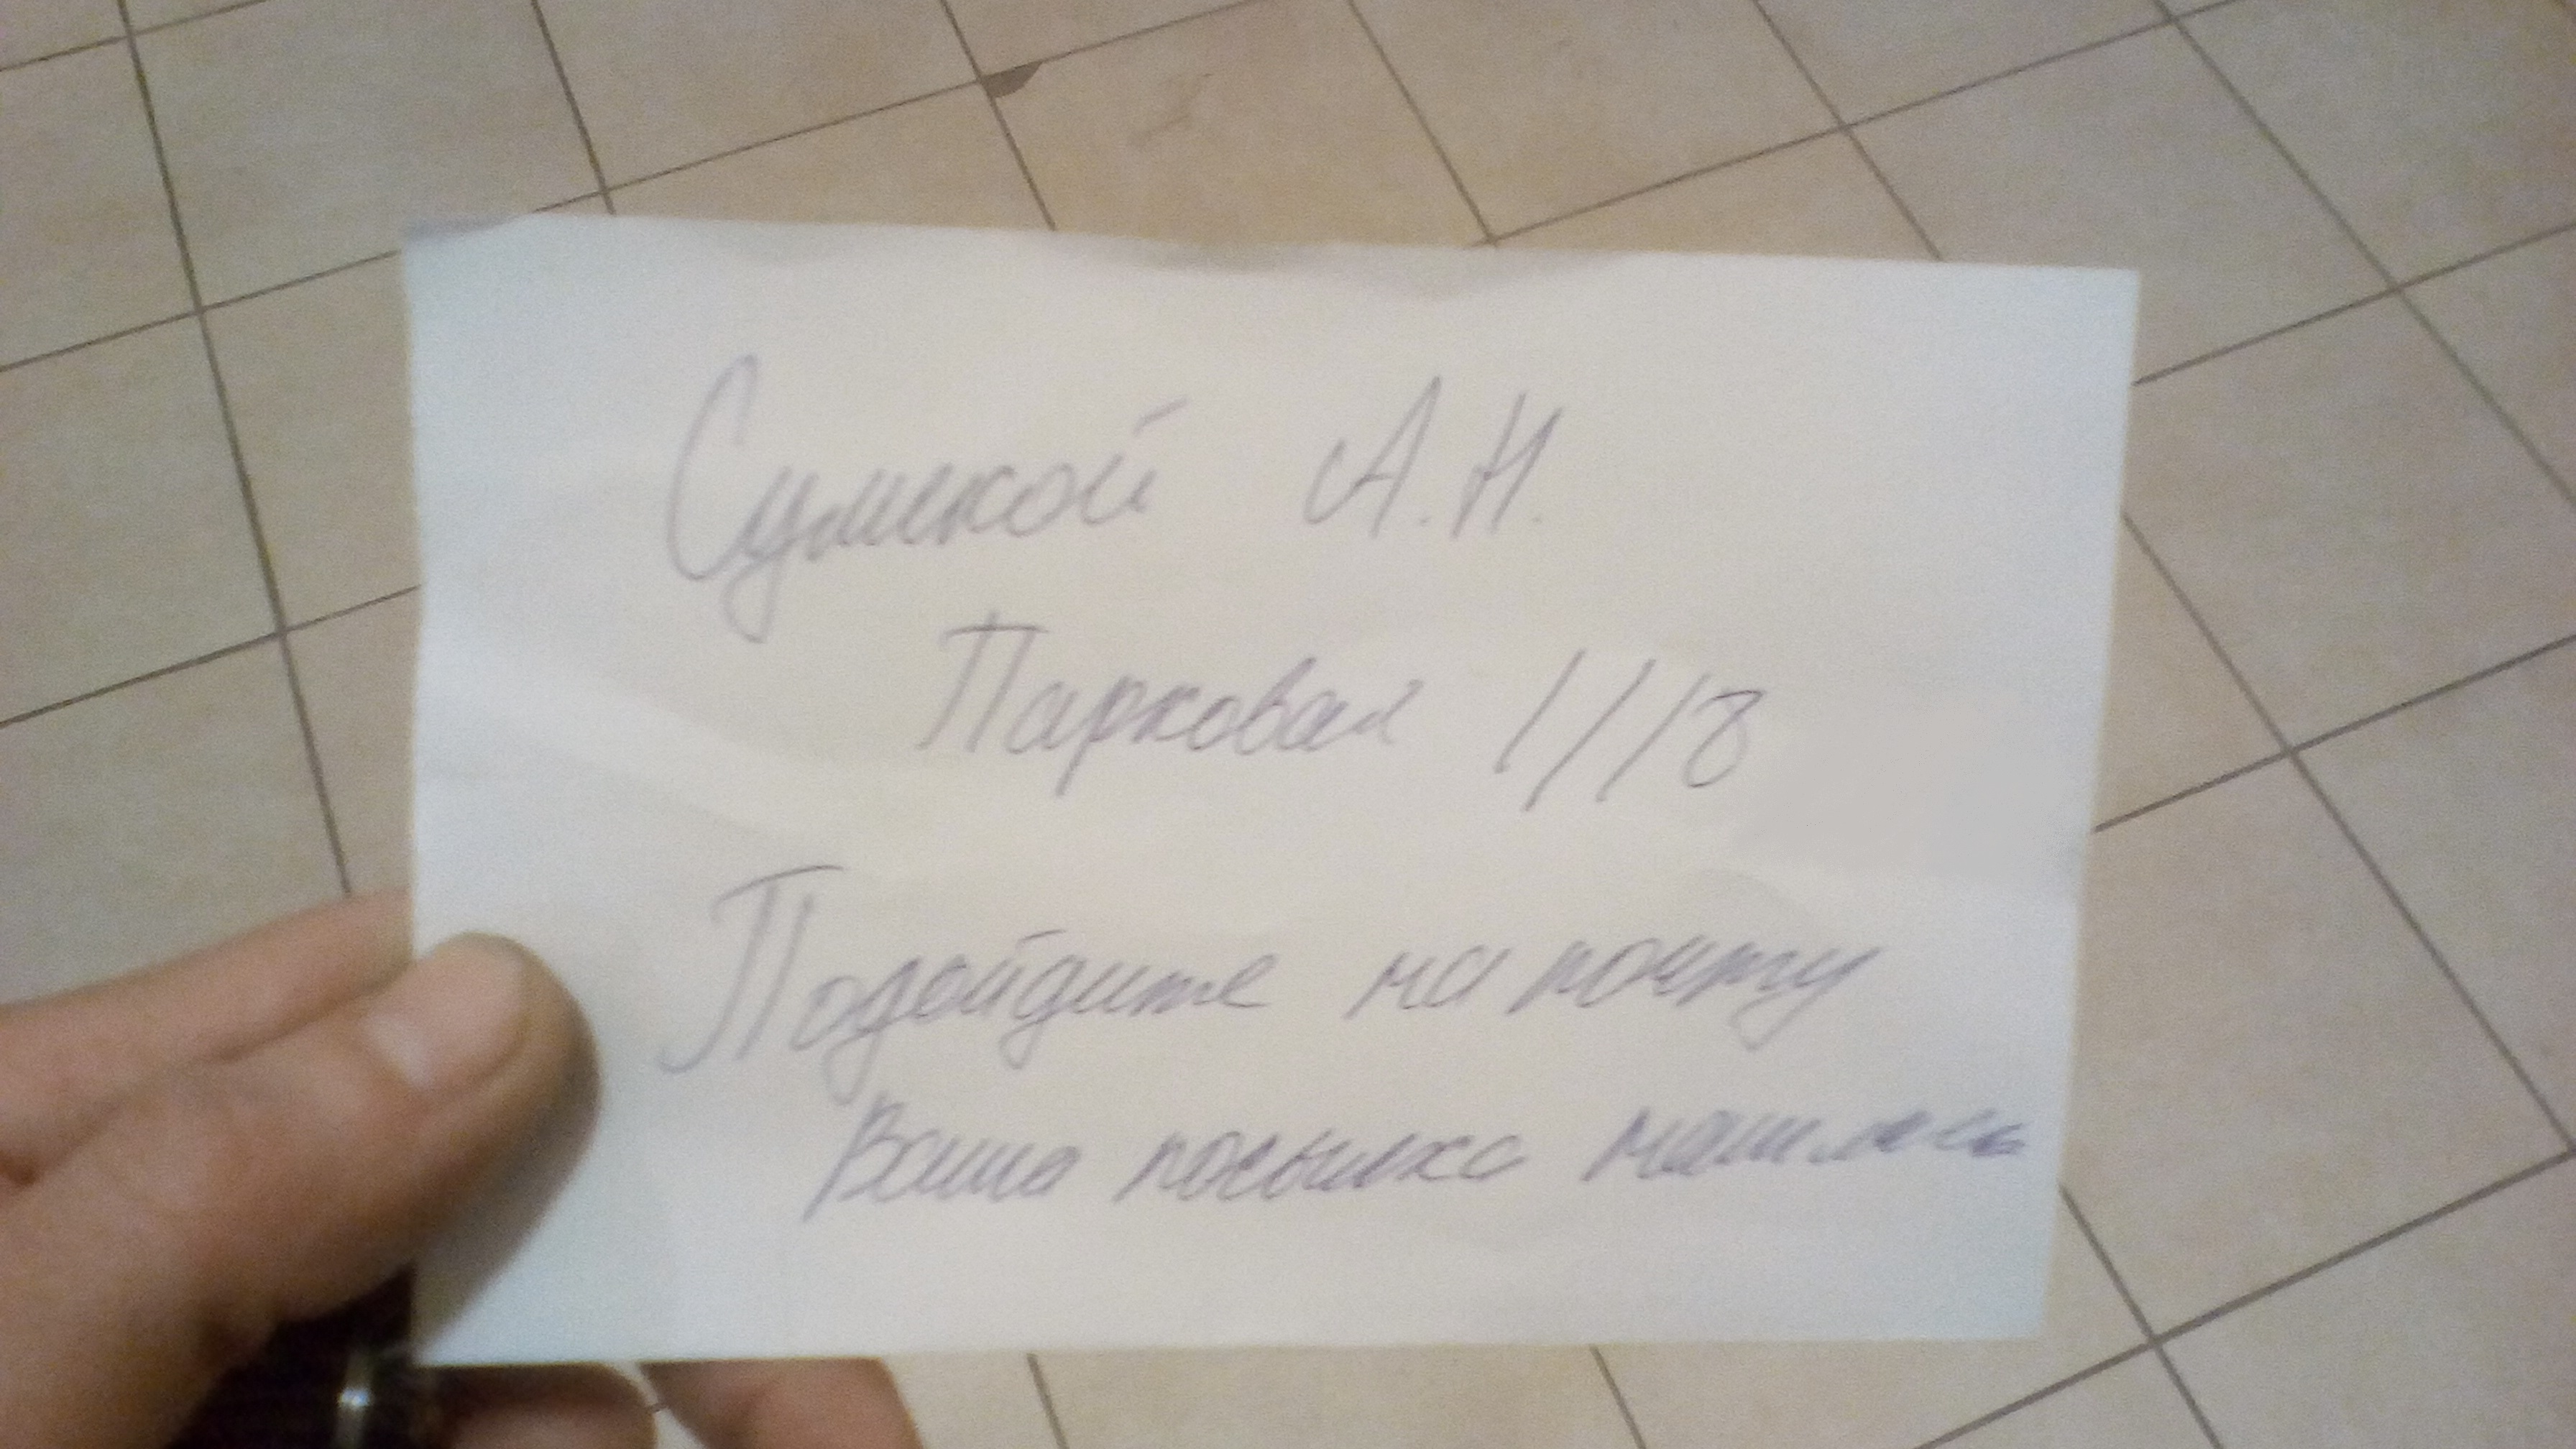 Сумской А.Н.
Парковая 1/18
Подойдите на почту
Ваша посылка нашлась